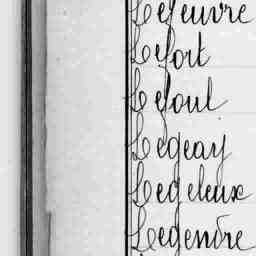 Lefeuvre
Lefort
Lefoul
Legeay
Legeleux
Legendre